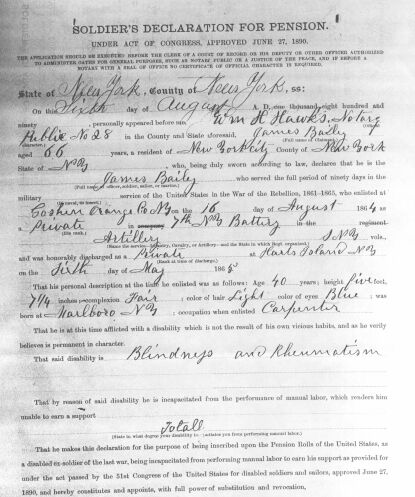 SOLDIER'S DECLARATION FOR PENSION.
UNDER ACT OF CONGRESS, APPROVED JUNE 27, 1890.
THE APPLICATION SHOULD BE EXECUTED BEFORE THE CLERK OF A COURT OF RECORD OR HIS DEPUTY OR OTHER OFFICER AUTHORIZED
TO ADMINISTER OATHS FOR GENERAL PURPOSES, SUCH AS NOTARY PUBLIC OR A JUSTICE OF THE PEACE, AND IF BEFORE A
NOTARY WITH A SEAL OF OFFICE NO CERTIFICATE OF OFFICIAL CHARACTER IS REQUIRED.
State of New York, County of New York, ss:
On this Sixth day of August A. D. one thousand eight hundred and
ninety, personally appeared before me Wm H. Hawks, Notary
Public No 28 in the County and State aforesaid, James Baily
aged 66 years, a resident of New York City County of New York
State of NY, who, being duly sworn according to law, declares that he is the
James Baily who served the full period of ninety days in the
(Full name of officer, soldier, sailor, or marine.)
military service of the United States in the War of the Rebellion, 1861-1865, who enlisted at
Goshen Orange Co NY on the 16 day of August 1864 as
a Private in 7th NY Battery in the regiment
Artillery vols.,
and was honorably discharged as Private at Harts Island NY
(Rank at time of discharge.)
on the Sixth day of May 1865
That his personal description at the time he enlisted was as follows: Age 40 years; height five feet,
7 1/4 inches; complexion Fair; color of hair Light color of eyes Blue; was
born at Marlboro NY; occupation when enlisted Carpenter
That he is at this time afflicted with a disability which is not the result of his own vicious habits, and as he verily
believes is permanent in character.
That said disability is Blindness and Rheumatism
That by reason of said disability he is incapacitated from the performance of manual labor, which renders him
unable to earn a support
Totall
(State in what degree your disability incapacitates you from performing manual labor.)
That he makes this declaration for the purpose of being inscribed upon the Pension Rolls of the United States, as
a disabled ex-soldier of the last war, being incapacitated from performing manual labor to earn his support as provided for
under the act passed by the 51st Congress of the United States for disabled soldiers and sailors, approved June 27,
1890, and hereby constitutes and appoints, with full power of substitution and revocation,